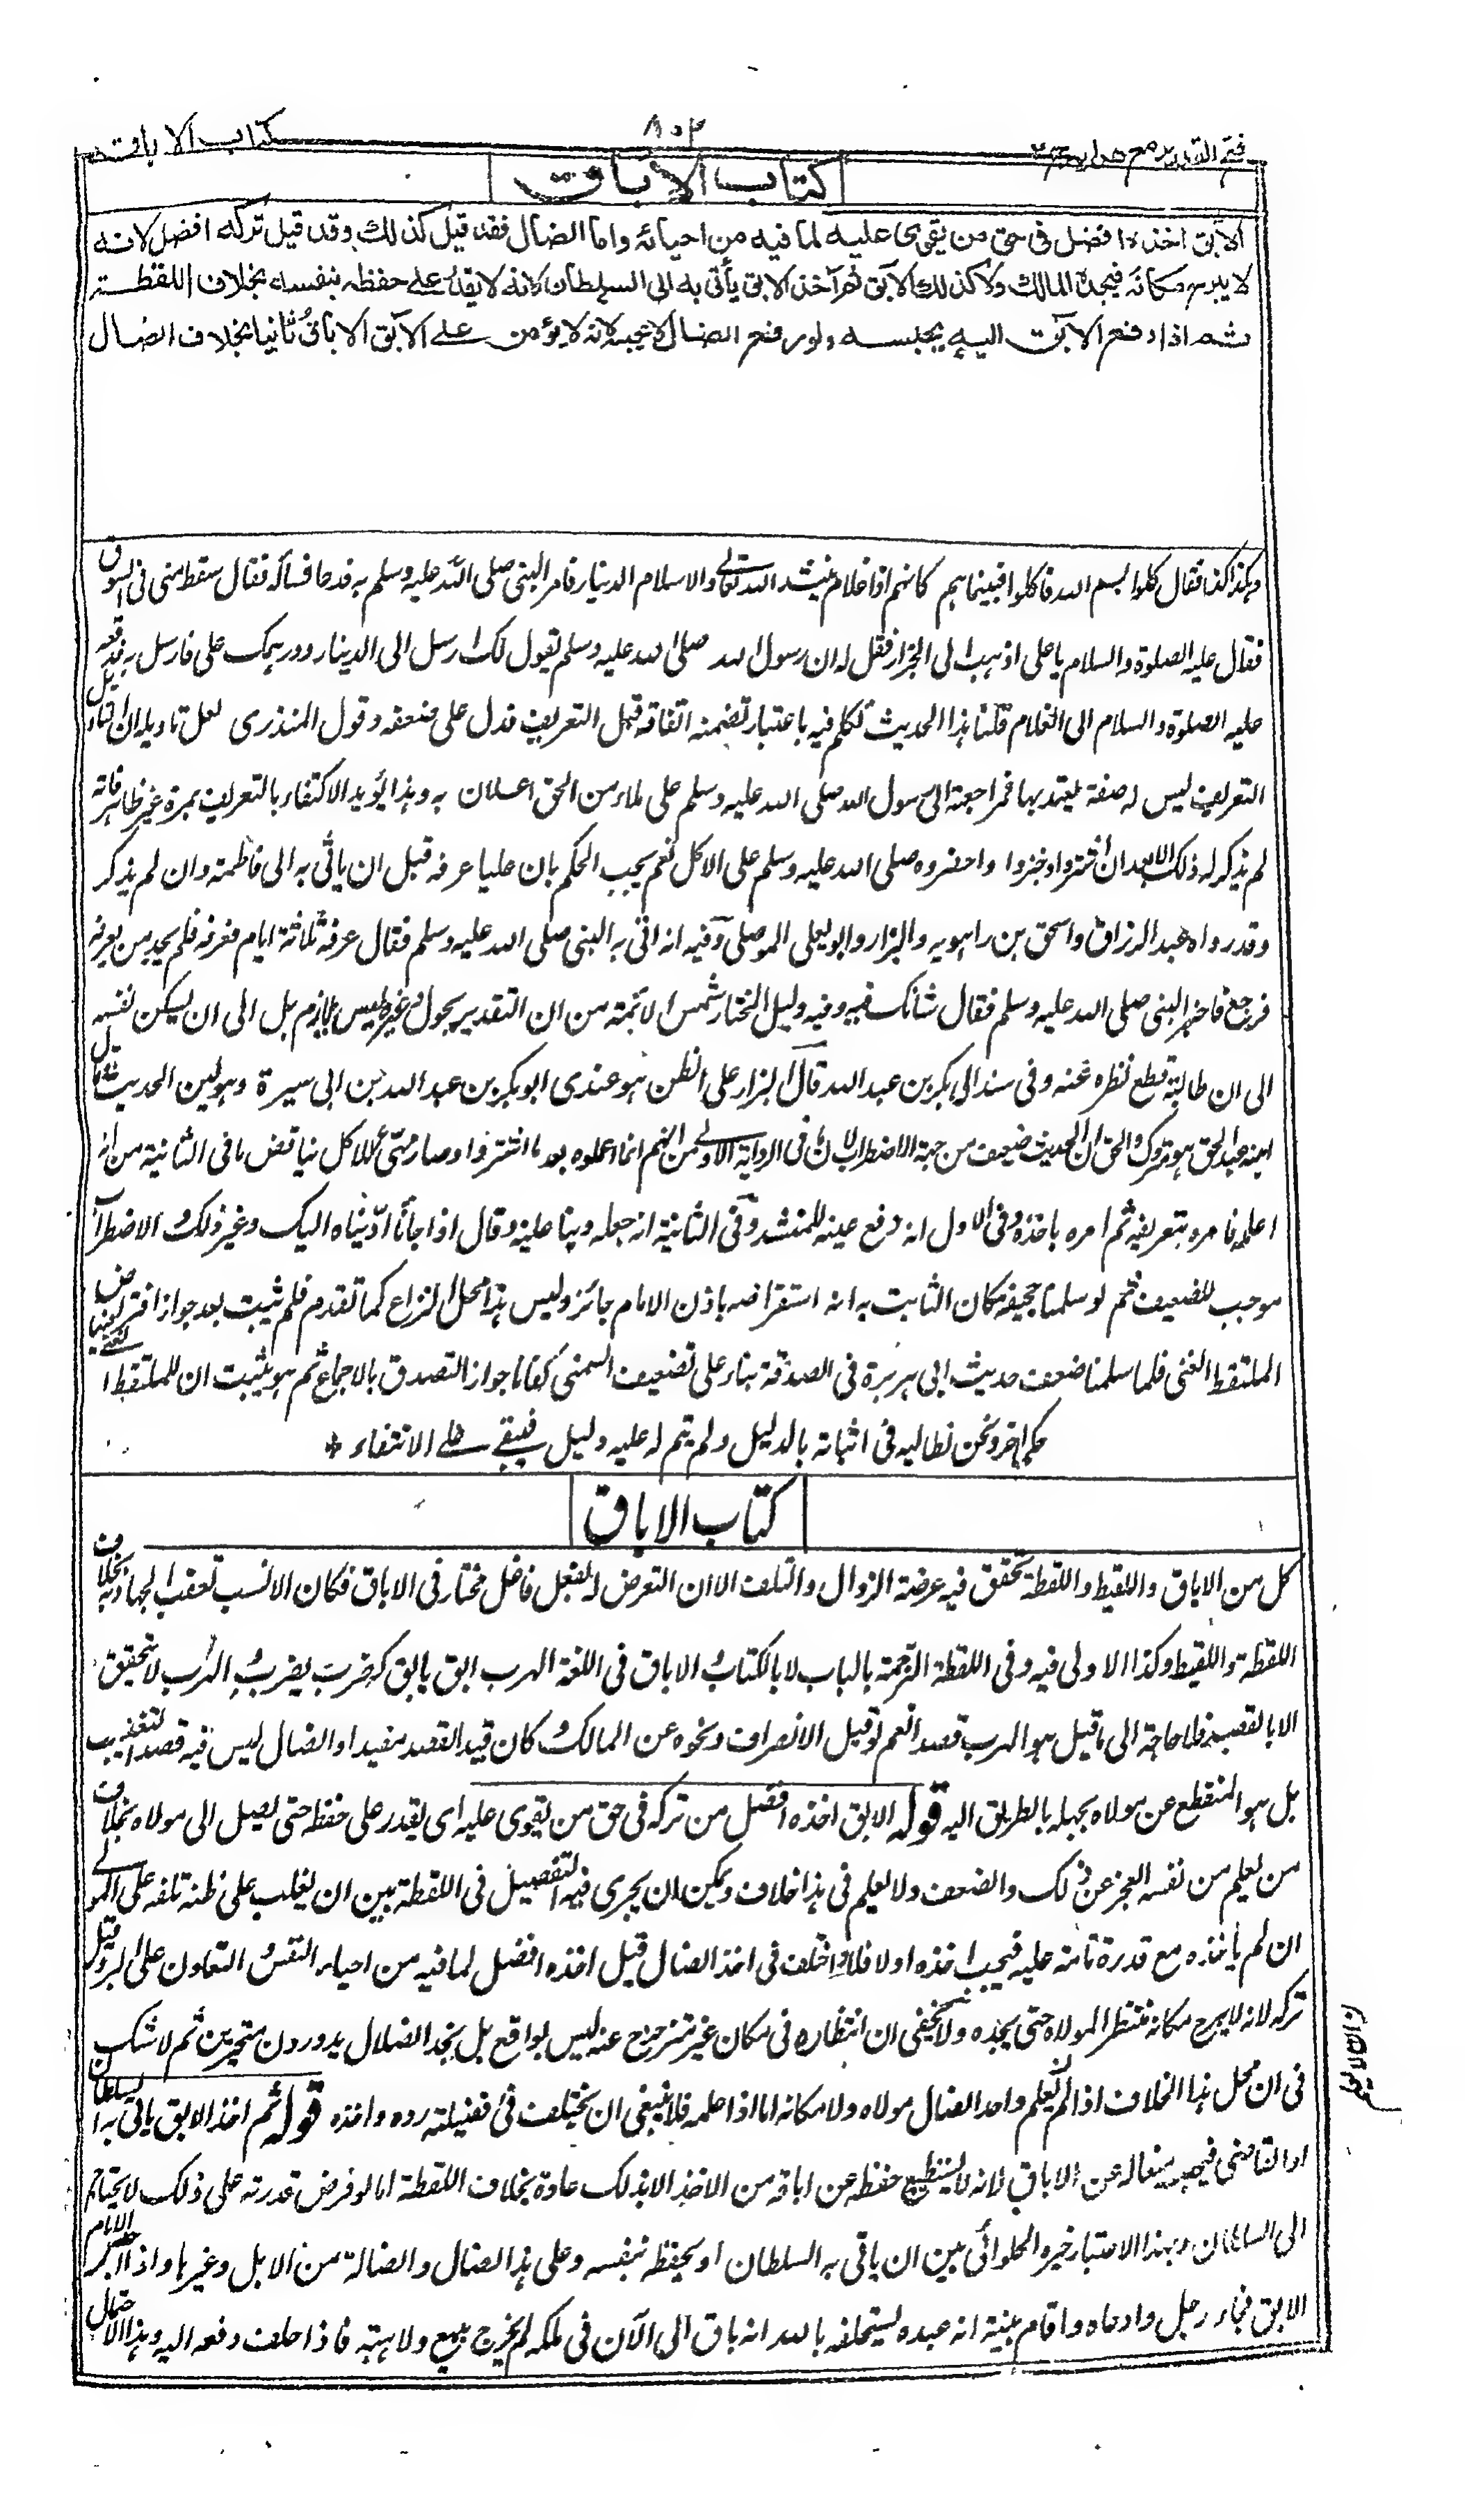 فتح القدير مع هدايه ج ٢
٨٠٢
كتاب الاباق
كتاب الاباق
الآبق اخذه افضل فى حق من يقوى عليه لما فيه من احيائه واما الضال فقد قيل كذلك وقد قيل تركه افضل لانه
لا يبرح مكانه فيجده المالك ولا كذلك الآبق ثم آخذ الآبق يأتى به الى السلطان لانه لا يقدر على حفظه بنفسه بخلاف اللقطة
ثم اذا دفع الآبق اليه يحبسه ولو رفع الضال لا يحبسه لانه لا يؤمن على الآبق الاباق ثانيا بخلاف الضال
وكذا كذا فقال كلوا بسم الله فاكلوا فبينما هم كانهم اذا غلام ينشد الله تعالى والاسلام الدينار فامر النبى صلى الله عليه وسلم به فدعا فسأله فقال سقط منى فى السوق
فقال عليه الصلوة والسلام يا على اذهب الى الجزار فقل له ان رسول الله صلى الله عليه وسلم يقول لك ارسل الى الدينار ودرهمك على فارسل به فدفعه
عليه الصلوة والسلام الى الغلام قلنا هذا الحديث تكلم فيه باعتبار تضمنه انفاقه قبل التعريف فدل على ضعفه وقول المنذرى لعل تاويله ان
التعريف ليس له صفة يعتد بها فمراجعته الى رسول الله صلى الله عليه وسلم على ملاء من الحق اعلان به وهذا يؤيد الاكتفاء بالتعريف بمرة غير ظاهر فانه
لم يذكر له ذلك الا بعد ان اشتروا وخبزوا واحضروه صلى الله عليه وسلم على الاكل نعم يجب الحكم بان عليا عرفه قبل ان ياتى به الى فاطمة وان لم يذكر
وقد رواه عبد الرزاق واسحق بن راهويه والبزار وابو يعلى الموصلى وفيه انه اتى به النبى صلى الله عليه وسلم فقال عرفه ثلاثة ايام فعرفه فلم يجد من يعرفه
فرجع فاخبر النبى صلى الله عليه وسلم فقال شانك به وفيه دليل المختار شمس الائمة من ان التقدير بحول وغيره ليس بلازم بل الى ان يسكن نفسه
الى ان طالبه قطع نظره عنه وفى سند ابى بكر بن عبد الله قال البزار على الظن هو عندى ابو بكر بن عبد الله بن ابى سبرة وهو لين الحديث
عبد الحق هو متروك والحق ان الحديث ضعيف من جهة الاضطراب لان فى الرواية الاولى من انهم انما اعلموه بعد ما اشتروا وصار مهيئ للاكل يناقض ما فى الثانية من انه
اعلمه فامره بتعريفه ثم امره باخذه وفى الاول انه دفع عينه للمنشد وفى الثانية انه جعله دينا عليه وقال اذا جاءنا اديناه اليك وغير ذلك والاضطراب
موجب للضعيف ثم لو سلمنا حجيته كان الثابت به انه استقراضه باذن الامام جائز وليس هذا محل النزاع كما تقدم فلم يثبت بعد جواز افتراض
الملتقط الغنى فلما سلمنا ضعف حديث ابى هريرة فى الصدقة بناء على تضعيف السمتى كفانا جواز التصدق بالاجماع ثم هو يثبت ان للملتقط
حكما اخر ونحن نطالبه فى اثباته بالدليل ولم يتم له عليه دليل فيبقى على الانتفاء
كتاب الاباق
كل من الاباق واللقيط واللقطة تحقق فيه عرضة الزوال والتلف الا ان التعرض له بفعل فاعل مختار فى الاباق فكان الانسب تعقيب الجهاد به بخلاف
اللقطة واللقيط وكذا الاولى فيه وفى اللقطة الترجمة بالباب لا بالكتاب والاباق فى اللغة الهرب ابق يابق كضرب يضرب والهرب لا يتحقق
الا بالقصد فلا حاجة الى ما قيل هو الهرب قصدا نعم لو قيل الانصراف ونحوه عن المالك كان قيد القصد مفيدا والضال ليس فيه قصد التغيب
بل هو المنقطع عن مولاه بجهله بالطريق اليه قوله الابق اخذه افضل من تركه فى حق من يقوى عليه اى يقدر على حفظه حتى يصل الى مولاه بخلاف
من يعلم من نفسه العجز عن ذلك والضعف ولا يعلم فى هذا خلاف ويمكن ان يجرى فيه التفصيل فى اللقطة بين ان يغلب على ظنه تلفه على المولى
ان لم ياخذه مع قدرة تامة عليه فيجب اخذه اولا فلا واختلف فى اخذ الضال قيل اخذه افضل لما فيه من احياء النفس والتعاون على البر وقيل
تركه لانه لا يبرح مكانه منتظرا لمولاه حتى يجده ولا يخفى ان انتظاره فى مكان غير متزحزح عنه ليس بواقع بل نجد الضلال يدورون متحيرين ثم لا شك
فى ان محل هذا الخلاف اذا لم يعلم واجد الضال مولاه ولا مكانه اما اذا علمه فلا ينبغى ان يختلف فى فضيلة رده واخذه قوله ثم اخذ الابق ياتى به السلطان
او القاضى فيحبسه منعا له عن الاباق لانه لا يستطيع حفظه عن اباقه من الاخذ الا بذلك عادة بخلاف اللقطة اما لو فرض قدرته على ذلك لا يحتاج
الى السلطان وبهذا الاعتبار خيره الحلوائى بين ان ياتى به السلطان او يحفظه بنفسه وعلى هذا الضال والضالة من الابل وغيرها واذا حبس الامام
الابق فجاء رجل وادعاه واقام بينة انه عبده يستحلفه بالله انه باق الى الآن فى ملكه لم يخرج ببيع ولا هبة فاذا حلف دفعه اليه وهذا لاحتمال